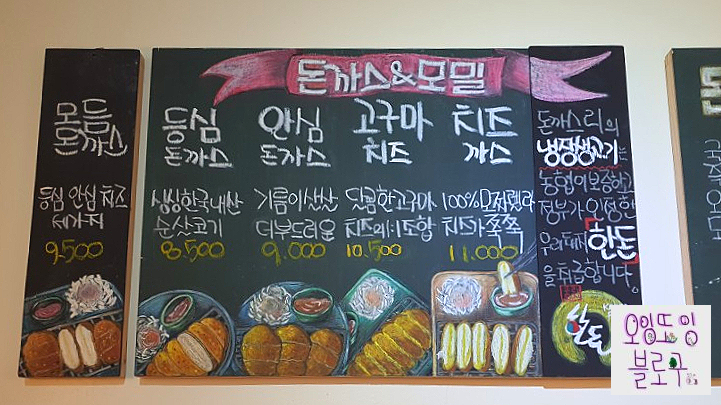 모듬
돈까스
등심 안심 치즈
세가지
9.500
돈까스&모밀
등심
돈까스
싱싱한국내산
순살고기
8.500
안심
돈까스
기름이살살
더부드러운
9.000
고구마
치즈
달콤한고구마
치즈의 조합
10.500
치즈
까스
100%모짜렐라
치즈가 쭉쭉
11.000
돈까스리의
냉장생고기
농협이보증하고
정부가 인정한
우리돼지
한돈
을취급합니다.
한돈
오잉또잉
블로그